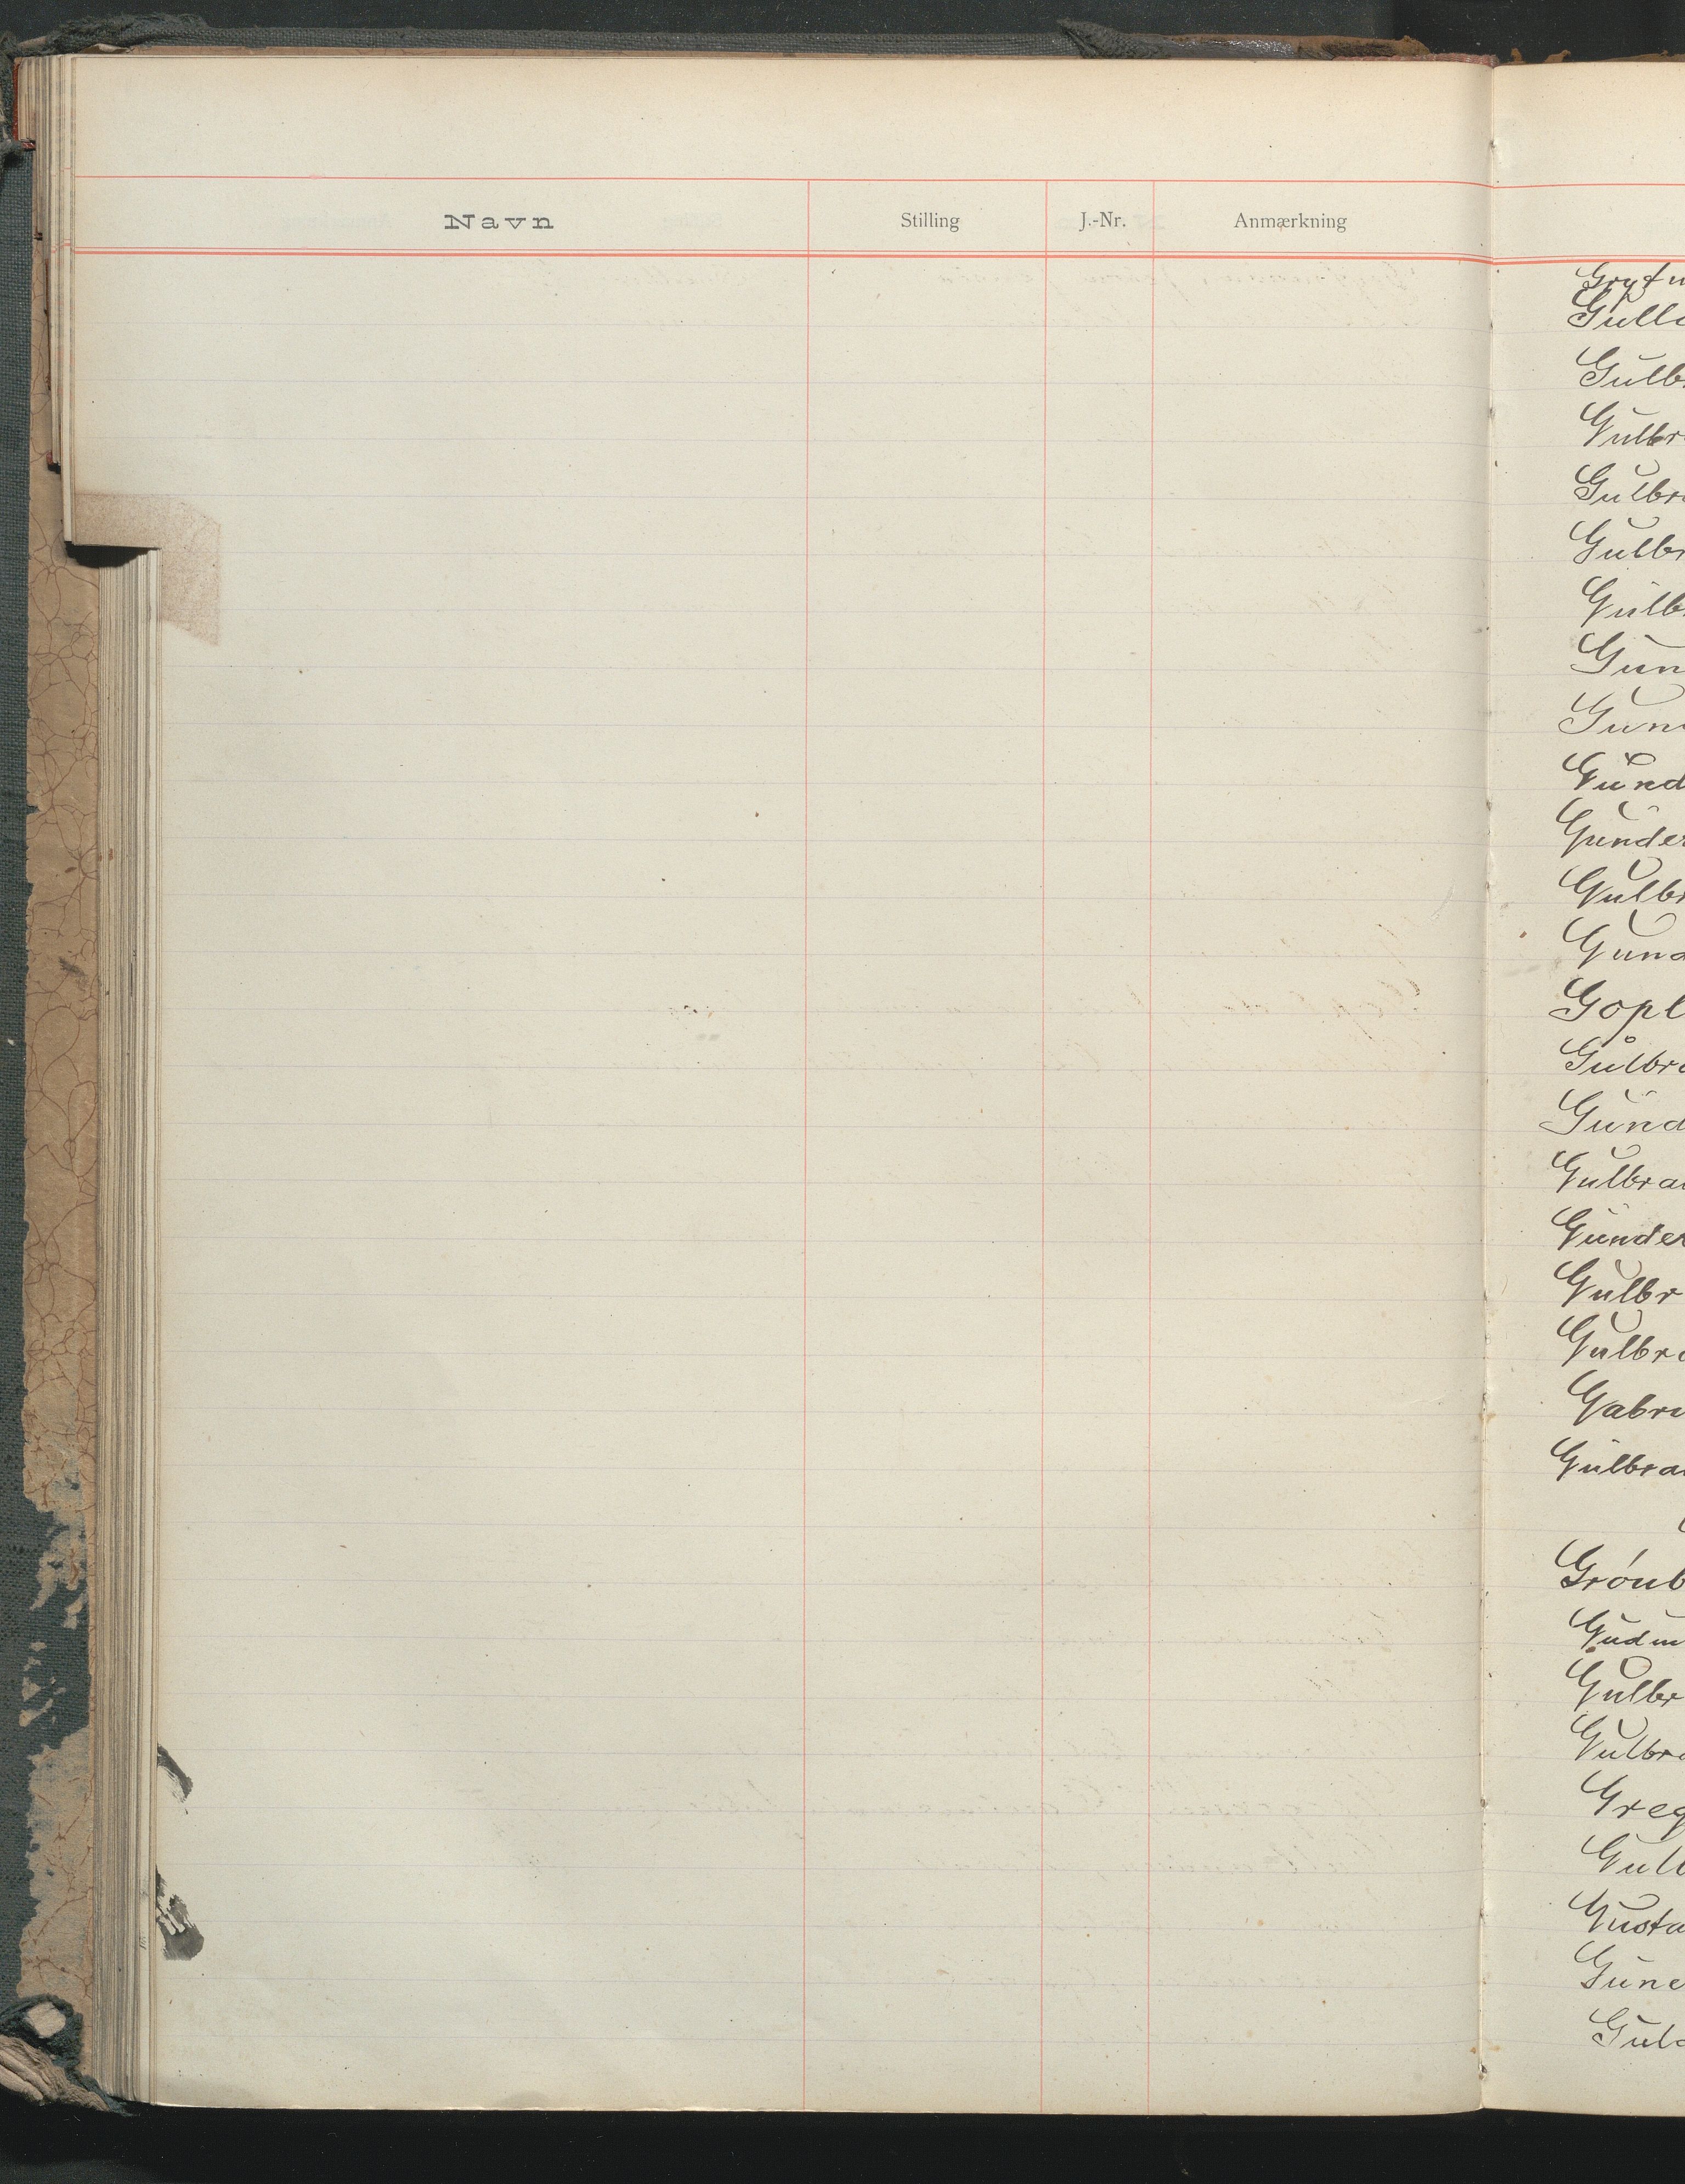 Navn Stilling J.-Nr. Anmærkning
Gulb
Gulbr
Gulbr
Gulbr
Gulb
Gun
Gun
Gund
Gunder
Gulbr
Gund
Gopl
Gulbra
Gund
Gulbran
Gunder
Gulbr
Gulbra
Gabri
Gulbran
Grönb
Gudm
Gulbr
Gulbra
Greg
Gulb
Gusta